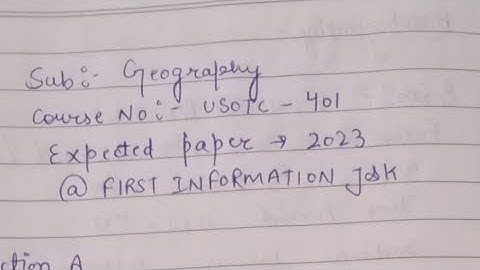 Sub:- Geography
Course No:- USOTC - 401
Expected paper → 2023
@ FIRST INFORMATION J&K
ction A